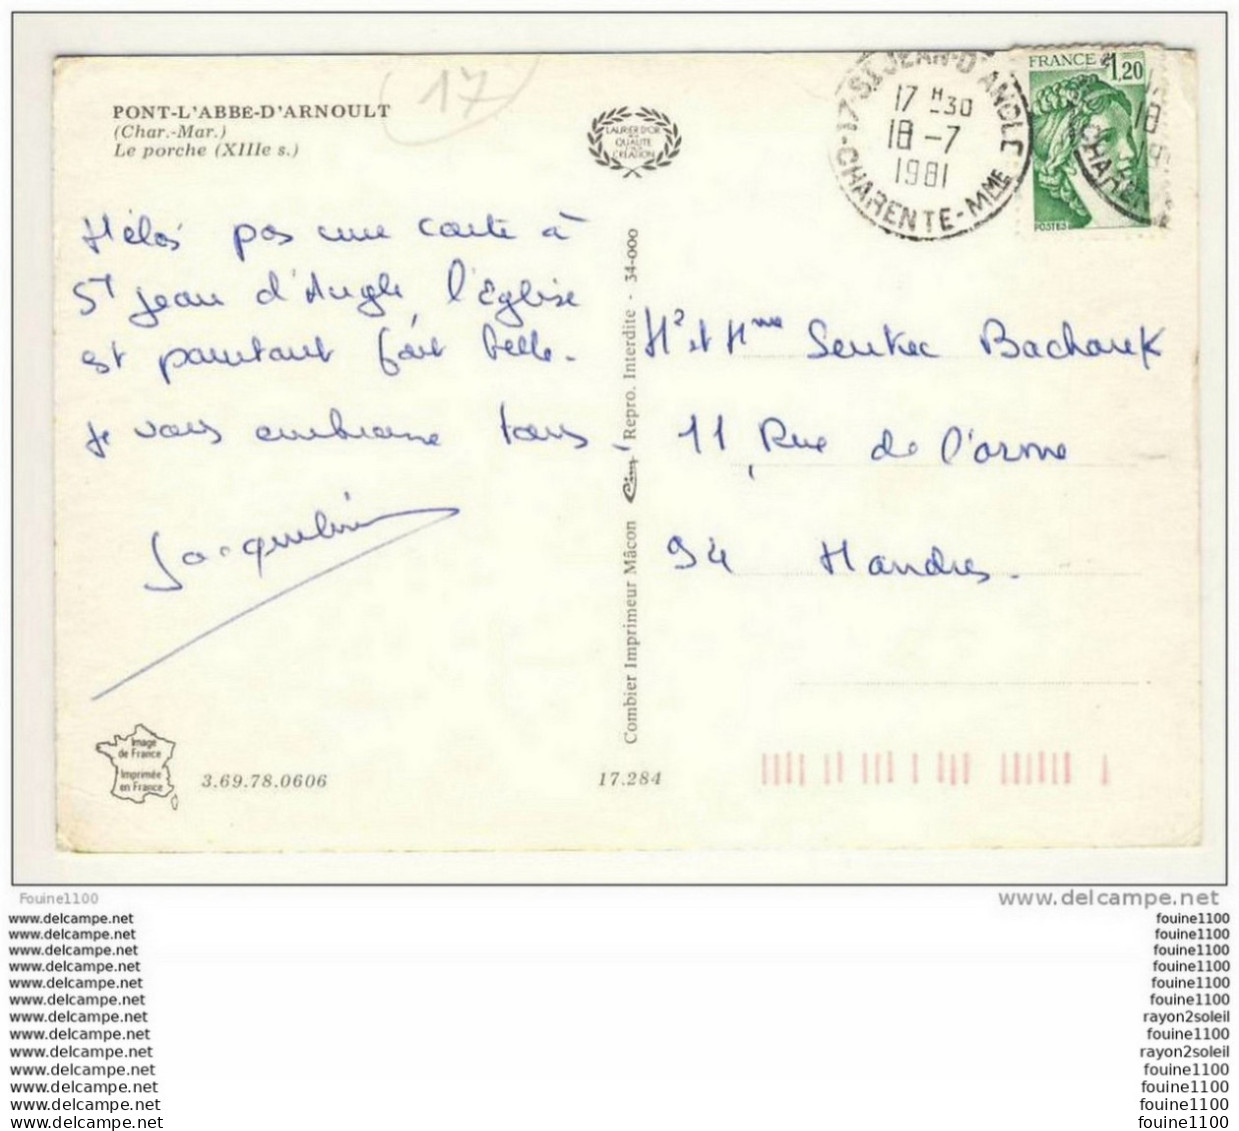 PONT-L'ABBE-D'ARNOULT
(Char.-Mar.)
Le porche (XIIIe s.)
17
LAURIER D'OR
QUALITÉ
CRÉATION
17 ST JEAN-D'ANGLE
17 H -30
18 -7
1981
CHARENTE-MME
FRANCE 1,20
POSTES
Hélas pas une carte à
St jean d'Angle, l'Eglise
est pourtant fort belle.
je vous embrasse tous.
Jacqueline
Mr et Mme Bachouk
11 Rue de l'orme
94 Mandres.
Combier Imprimeur Mâcon Cim Repro. Interdite - 34-000
Image
de France
Imprimée
en France
3.69.78.0606
17.284
Fouine1100
www.delcampe.net
www.delcampe.net
fouine1100
www.delcampe.net
fouine1100
www.delcampe.net
fouine1100
www.delcampe.net
fouine1100
www.delcampe.net
fouine1100
www.delcampe.net
fouine1100
www.delcampe.net
rayon2soleil
www.delcampe.net
fouine1100
www.delcampe.net
rayon2soleil
www.delcampe.net
fouine1100
www.delcampe.net
fouine1100
www.delcampe.net
fouine1100
www.delcampe.net
fouine1100